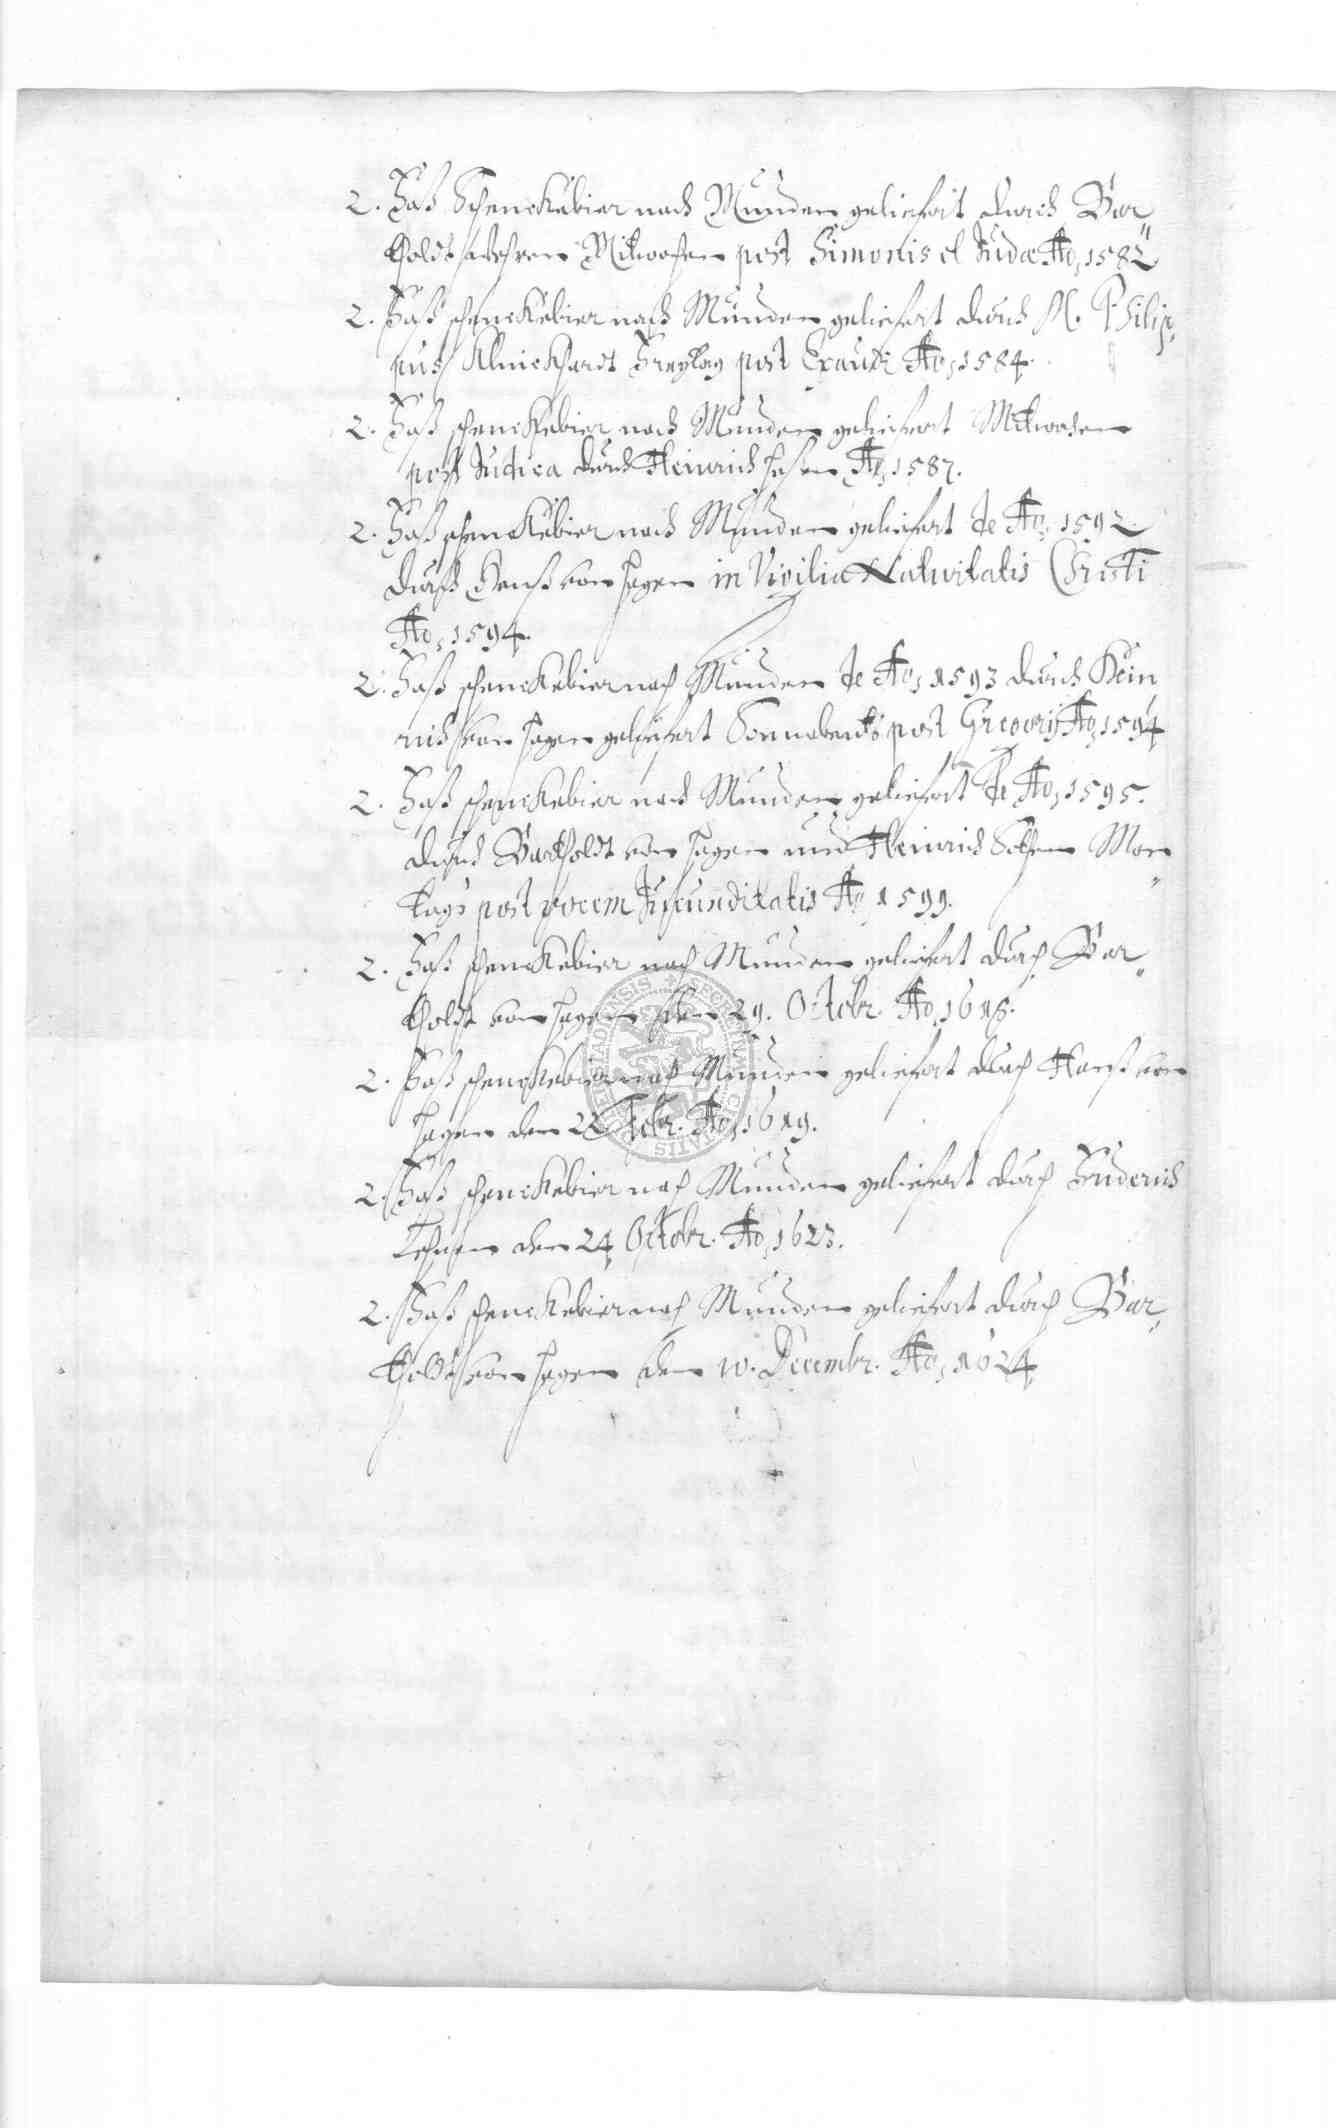 2. Faß Schenckebier nach Munden geliefert durch Bar"
tholdt Mitwochen post Simonis et Judæ Ao, 1582
2. Faß schenckebier nach Munden geliefert durch M. Philip,
pus Freytag post Exaudi Ao, 1584.
2. Faß schenckebier nach Munden geliefert Mitwochen
post Judica durch Heinrich Ao, 1587.
2. Faß schenckebier nach Munden geliefert de Ao, 1592.
durch Hanß von Hagen in Vigilia Nativitatis Christi
Ao, 1594.
2. Faß schenckebier nach Munden de Ao, 1593 durch Hein,
rich von Hagen geliefert Sonnabents post Gregorij Ao, 1594
2. Faß schenckebier nach Munden geliefert de Ao, 1595.
durch Bartholdt von Hagen und Heinrich Mon"
tags post vocem Jucunditatis Ao 1599.
2. Faß schenckebier nach Munden geliefert durch Bar"
tholdt von Hagen den 29. Octobr. Ao,
2. Faß schenckebier nach Munden geliefert durch Hanß von
Hagen den Ao, 1619.
2. Faß schenckebier nach Munden geliefert durch
den 24, Octobr. Ao, 1623.
2. Faß schenckebier nach Munden geliefert durch Bar,
tholdt von Hagen den 10. Decembr. Ao, 1624